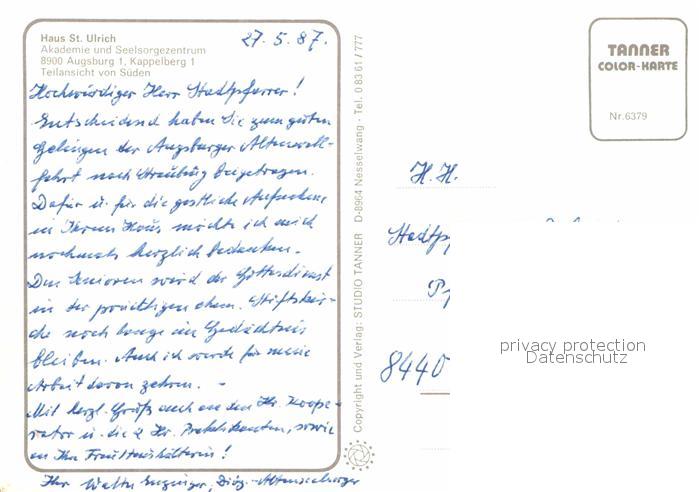 Haus St. Ulrich
Akademie und Seelsorgezentrum
8900 Augsburg 1, Kappelberg 1
Teilansicht von Süden
27. 5. 87.
Hochwürdiger Herr Stadtpfarrer!
Entscheidend haben Sie zum guten
Gelingen der Augsburger Altenwall-
fahrt nach Straubing beigetragen.
Dafür u. für die gastliche Aufnahme
in Ihrem Haus möchte ich mich
nochmals herzlich bedanken.
Den Senioren wird der Gottesdienst
in der prächtigen ehem. Stiftskir-
che noch lange im Gedächtnis
bleiben. Auch ich werde für meine
Arbeit davon zehren. -
Mit herzl. Gruß auch an den Hr. Koope-
rator u. die 2 Hr. Praktikanten, sowie
an Ihre Frau Haushälterin!
Ihr Walter Diöz.-Altenseelsorger
Copyright und Verlag: STUDIO TANNER D-8964 Nesselwang - Tel. 0 83 61 / 777
TANNER
COLOR-KARTE
Nr. 6379
H. H.
Stadtpf
8440
privacy protection
Datenschutz